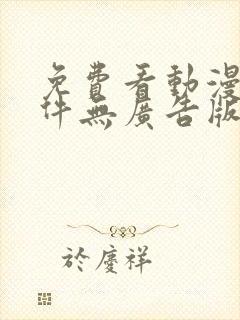 免費看動漫
件無廣告版
於慶祥